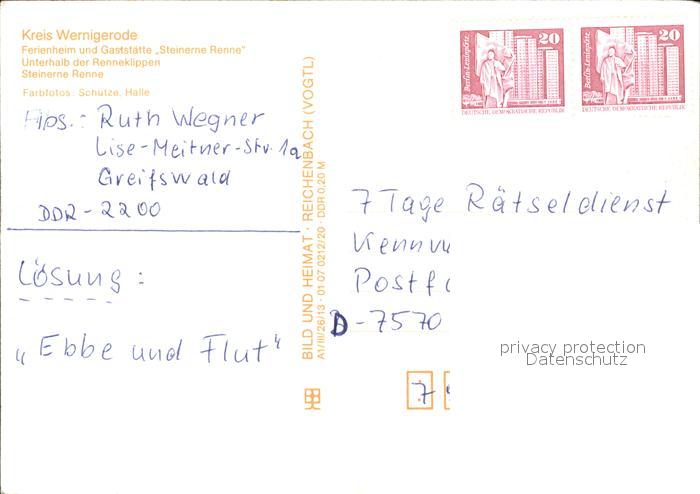 Kreis Wernigerode
Ferienheim und Gaststätte „Steinerne Renne"
Unterhalb der Renneklippen
Steinerne Renne
Farbfotos: Schutze, Halle
Ruth Wegner
Lise-Meitner-Str. 1a
Greifswald
DDR-2200
Lösung:
„Ebbe und Flut"
BILD UND HEIMAT · REICHENBACH (VOGTL)
A1/III/26/13 · 01 07 0212/20 · DDR 0,20 M
Berlin-Leninplatz
20
DEUTSCHE DEMOKRATISCHE REPUBLIK
Berlin-Leninplatz
20
DEUTSCHE DEMOKRATISCHE REPUBLIK
7 Tage Rätseldienst
D-7570
7
privacy protection
Datenschutz